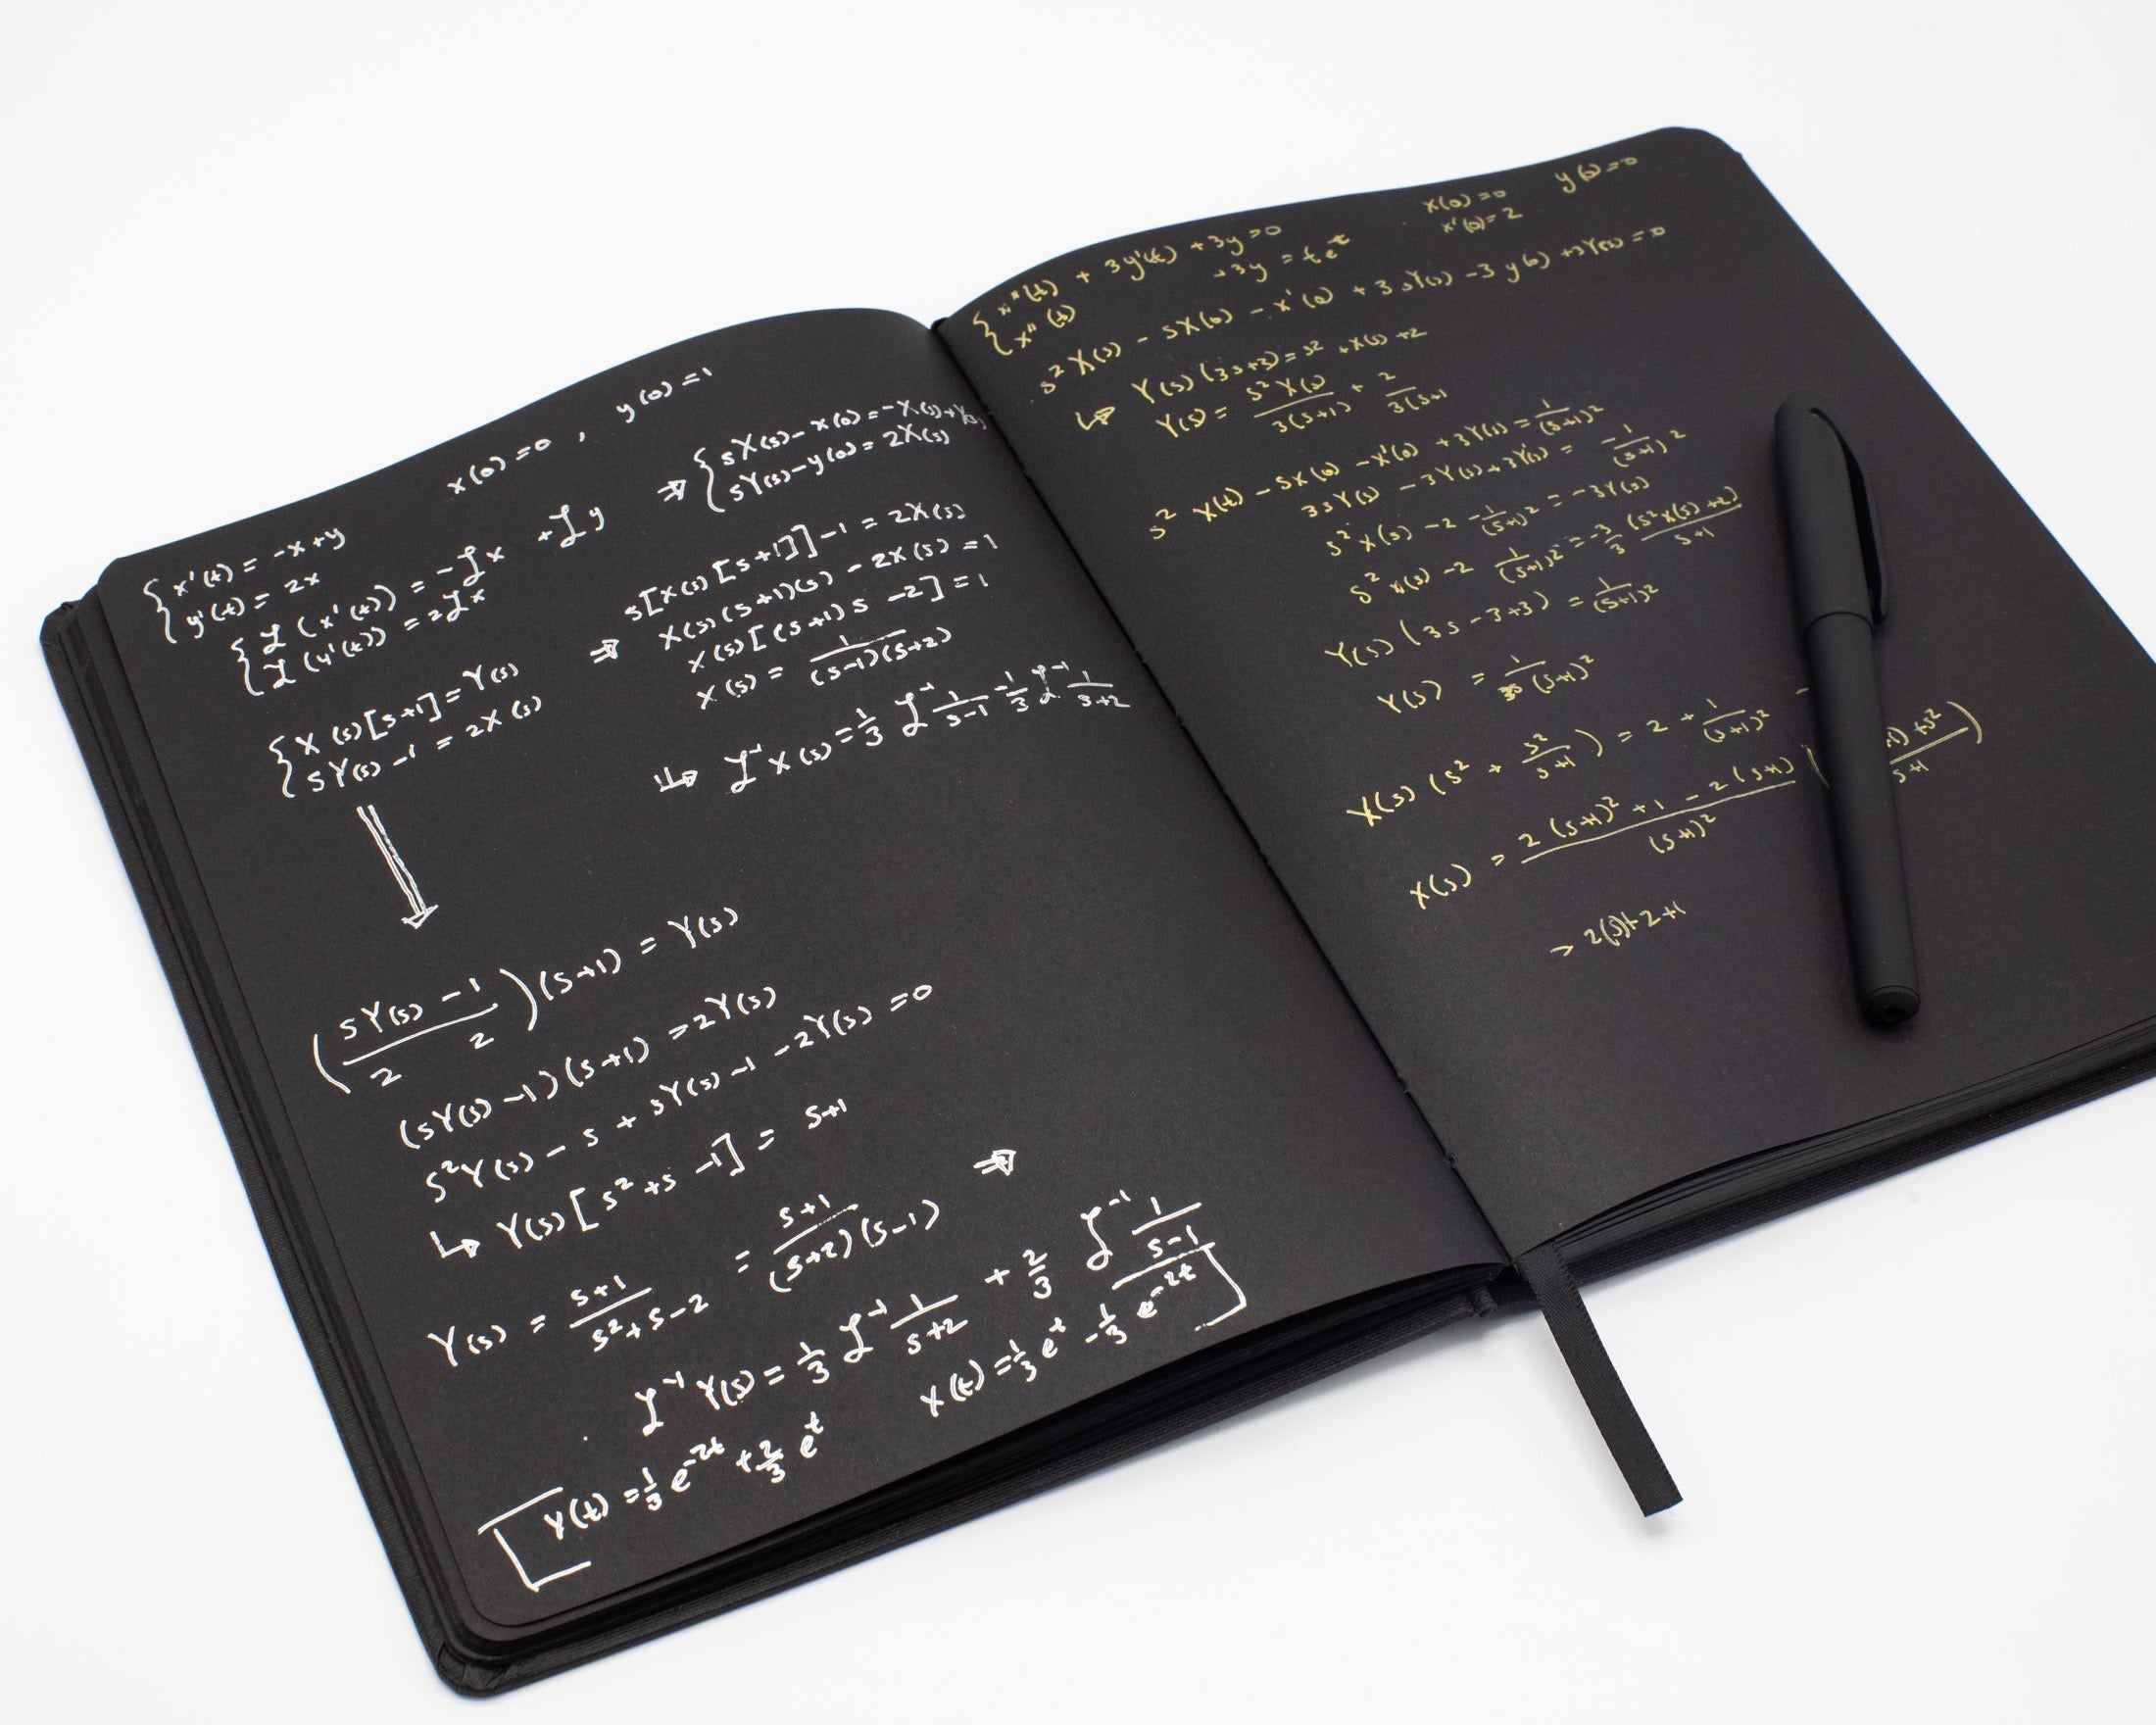 x(0)=0 , y(0)=1
{ x'(t) = -x+y
y'(t) = 2x
{ ℒ(x'(t)) = -ℒx +ℒy
ℒ(y'(t)) = 2ℒx
⇒ { sX(s)-x(0)=-X(s)+Y(s)
sY(s)-y(0)=2X(s)
{ X(s)[s+1]=Y(s)
sY(s)-1 = 2X(s)
⇒ s[X(s)[s+1]]-1 = 2X(s)
X(s)(s+1)(s) - 2X(s) = 1
X(s)[(s+1)s -2] = 1
X(s) = 1/(s-1)(s+2)
↳ ℒ⁻¹ X(s) = 1/3 ℒ⁻¹ 1/s-1 -1/3 ℒ⁻¹ 1/s+2
(sY(s) -1 / 2 2)(s+1) = Y(s)
(sY(s) -1)(s+1) = 2Y(s)
s²Y(s) - s + sY(s) -1 -2Y(s) = 0
↳ Y(s)[s²+s -1] = s+1
Y(s) = s+1/s²+s-2 = s+1/(s+2)(s-1) ⇒
ℒ⁻¹ Y(s) = 1/3 ℒ⁻¹ 1/s+2 + 2/3 ℒ⁻¹ 1/s-1
Y(t) = 1/3 e^-2t + 2/3 e^t
X(t) = 1/3 e^t - 1/3 e^-2t
{ x''(t) + 3y'(t) +3y = 0
x''(t) +3y = te^t
x(0) = 0
x'(0) = 2
y(0) = 0
s²X(s) - sX(0) - x'(0) + 3sY(s) -3y(0) +3Y(s) = 0
↳ Y(s)(3s+3) = s² +X(s) +2
Y(s) = s²X(s)/3(s+1) + 2/3(s+1
s² X(t) - sX(0) -X'(0) +3Y(s) = 1/(s+1)²
3sY(s) -3Y(s)+3Y(s) = -1/(s+1)²
s²X(s) -2 -1/(s+1)² = -3Y(s)
s²X(s) -2 1/(s+1)² = -3/3 (s²X(s)+2)/s+1
Y(s)(3s-3+3) = 1/(s+1)²
Y(s) = 1/3s(s+1)²
X(s)(s² + s²/s+1) = 2 + 1/(s+1)² -
X(s) = 2(s+1)²+1-2(s+1)/(s+1)² ( +1)+s²/s+1)
→ 2(s)+2+1